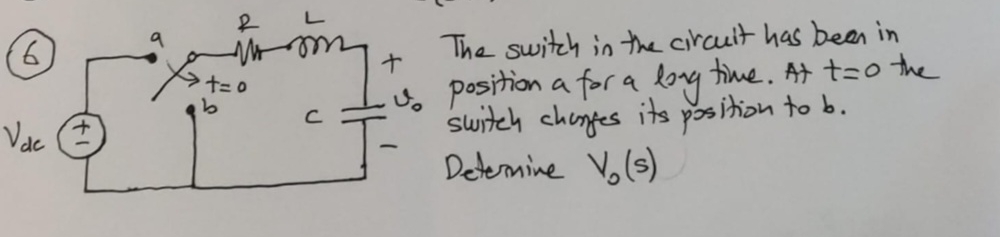 6
a
R
L
t=0
b
Vdc
+
-
C
+
vo
-
The switch in the circuit has been in
position a for a long time. At t=0 the
switch changes its position to b.
Determine Vo(s)